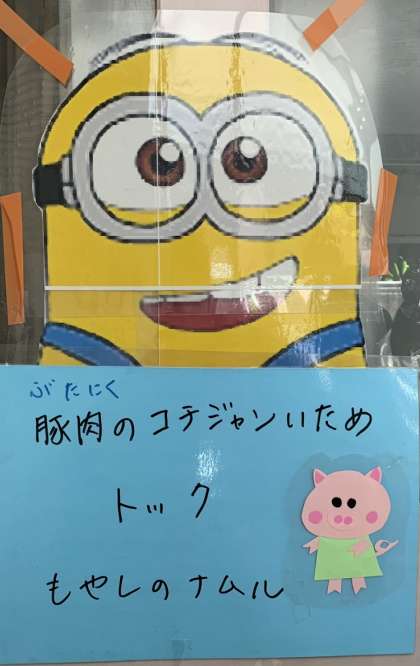 ぶたにく
豚肉のコチジャンいため
トック
もやしのナムル